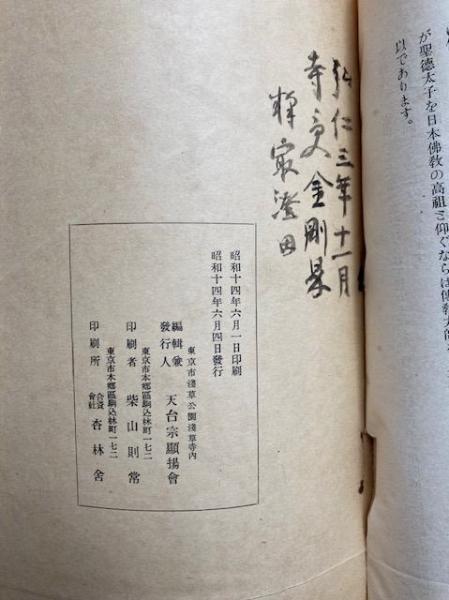 が聖德太子を日本佛敎の高祖と仰ぐならば傳敎大師
以であります。
弘仁三年十一月
金剛
釋最澄
昭和十四年六月一日印刷
昭和十四年六月四日發行
東京市淺草公園淺草寺內
編輯兼
發行人 天台宗顯揚會
東京市本鄕區駒込林町一七二
印刷者 柴山則常
東京市本鄕區駒込林町一七二
印刷所 合資會社 杏林舍